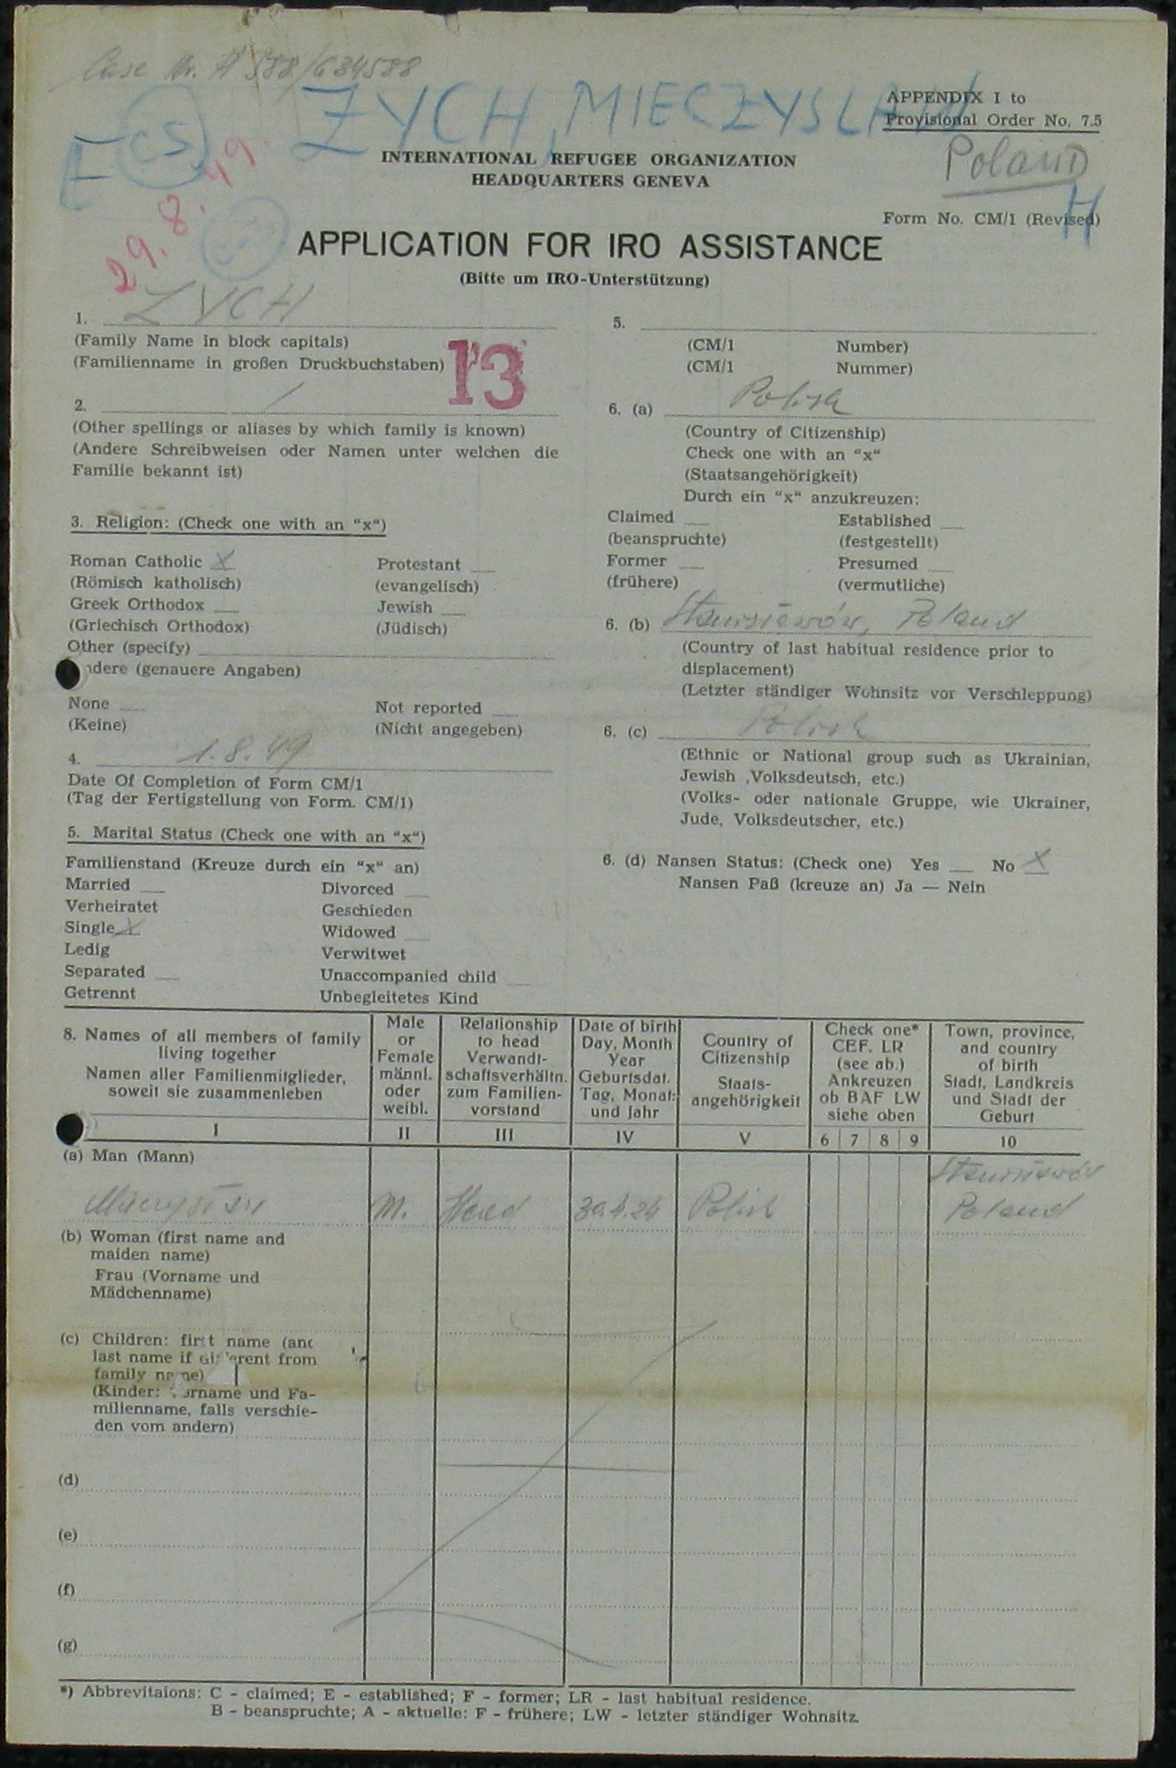 Case Nr. A 588/684588
ZYCH, MIECZYSLAW
E CS
29.8.49.
APPENDIX I to
Provisional Order No. 7.5
Poland
INTERNATIONAL REFUGEE ORGANIZATION
HEADQUARTERS GENEVA
Form No. CM/1 (Revised)
H
APPLICATION FOR IRO ASSISTANCE
(Bitte um IRO-Unterstützung)
1. ZYCH
(Family Name in block capitals)
(Familienname in großen Druckbuchstaben)
13
2. /
(Other spellings or aliases by which family is known)
(Andere Schreibweisen oder Namen unter welchen die
Familie bekannt ist)
3. Religion: (Check one with an "x")
Roman Catholic X Protestant
(Römisch katholisch) (evangelisch)
Greek Orthodox Jewish
(Griechisch Orthodox) (Jüdisch)
Other (specify)
ndere (genauere Angaben)
None Not reported
(Keine) (Nicht angegeben)
4. 1.8.49
Date Of Completion of Form CM/1
(Tag der Fertigstellung von Form. CM/1)
5. Marital Status (Check one with an "x")
Familienstand (Kreuze durch ein "x" an)
Married Divorced
Verheiratet Geschieden
Single X Widowed
Ledig Verwitwet
Separated Unaccompanied child
Getrennt Unbegleitetes Kind
5.
(CM/1 Number)
(CM/1 Nummer)
6. (a) Polish
(Country of Citizenship)
Check one with an "x"
(Staatsangehörigkeit)
Durch ein "x" anzukreuzen:
Claimed Established
(beanspruchte) (festgestellt)
Former Presumed
(frühere) (vermutliche)
6. (b) Stanisławów, Poland
(Country of last habitual residence prior to
displacement)
(Letzter ständiger Wohnsitz vor Verschleppung)
6. (c) Polish
(Ethnic or National group such as Ukrainian,
Jewish ,Volksdeutsch, etc.)
(Volks- oder nationale Gruppe, wie Ukrainer,
Jude, Volksdeutscher, etc.)
6. (d) Nansen Status: (Check one) Yes No X
Nansen Paß (kreuze an) Ja — Nein
8. Names of all members of family
living together
Namen aller Familienmitglieder,
soweit sie zusammenleben
Male
or
Female
männl.
oder
weibl.
Relationship
to head
Verwandt-
schaftsverhältn.
zum Familien-
vorstand
Date of birth
Day, Month
Year
Geburtsdat.
Tag, Monat
und Jahr
Country of
Citizenship
Staats-
angehörigkeit
Check one*
CEF. LR
(see ab.)
Ankreuzen
ob BAF LW
siehe oben
Town, province,
and country
of birth
Stadt, Landkreis
und Stadt der
Geburt
I II III IV V 6 7 8 9 10
(a) Man (Mann)
Mieczysław M. Head 30.4.24 Polish Stanisławów
Poland
(b) Woman (first name and
maiden name)
Frau (Vorname und
Mädchenname)
(c) Children: first name (and
last name if different from
family name)
(Kinder: Vorname und Fa-
milienname, falls verschie-
den vom andern)
(d)
(e)
(f)
(g)
*) Abbrevitaions: C - claimed; E - established; F - former; LR - last habitual residence.
B - beanspruchte; A - aktuelle: F - frühere; LW - letzter ständiger Wohnsitz.